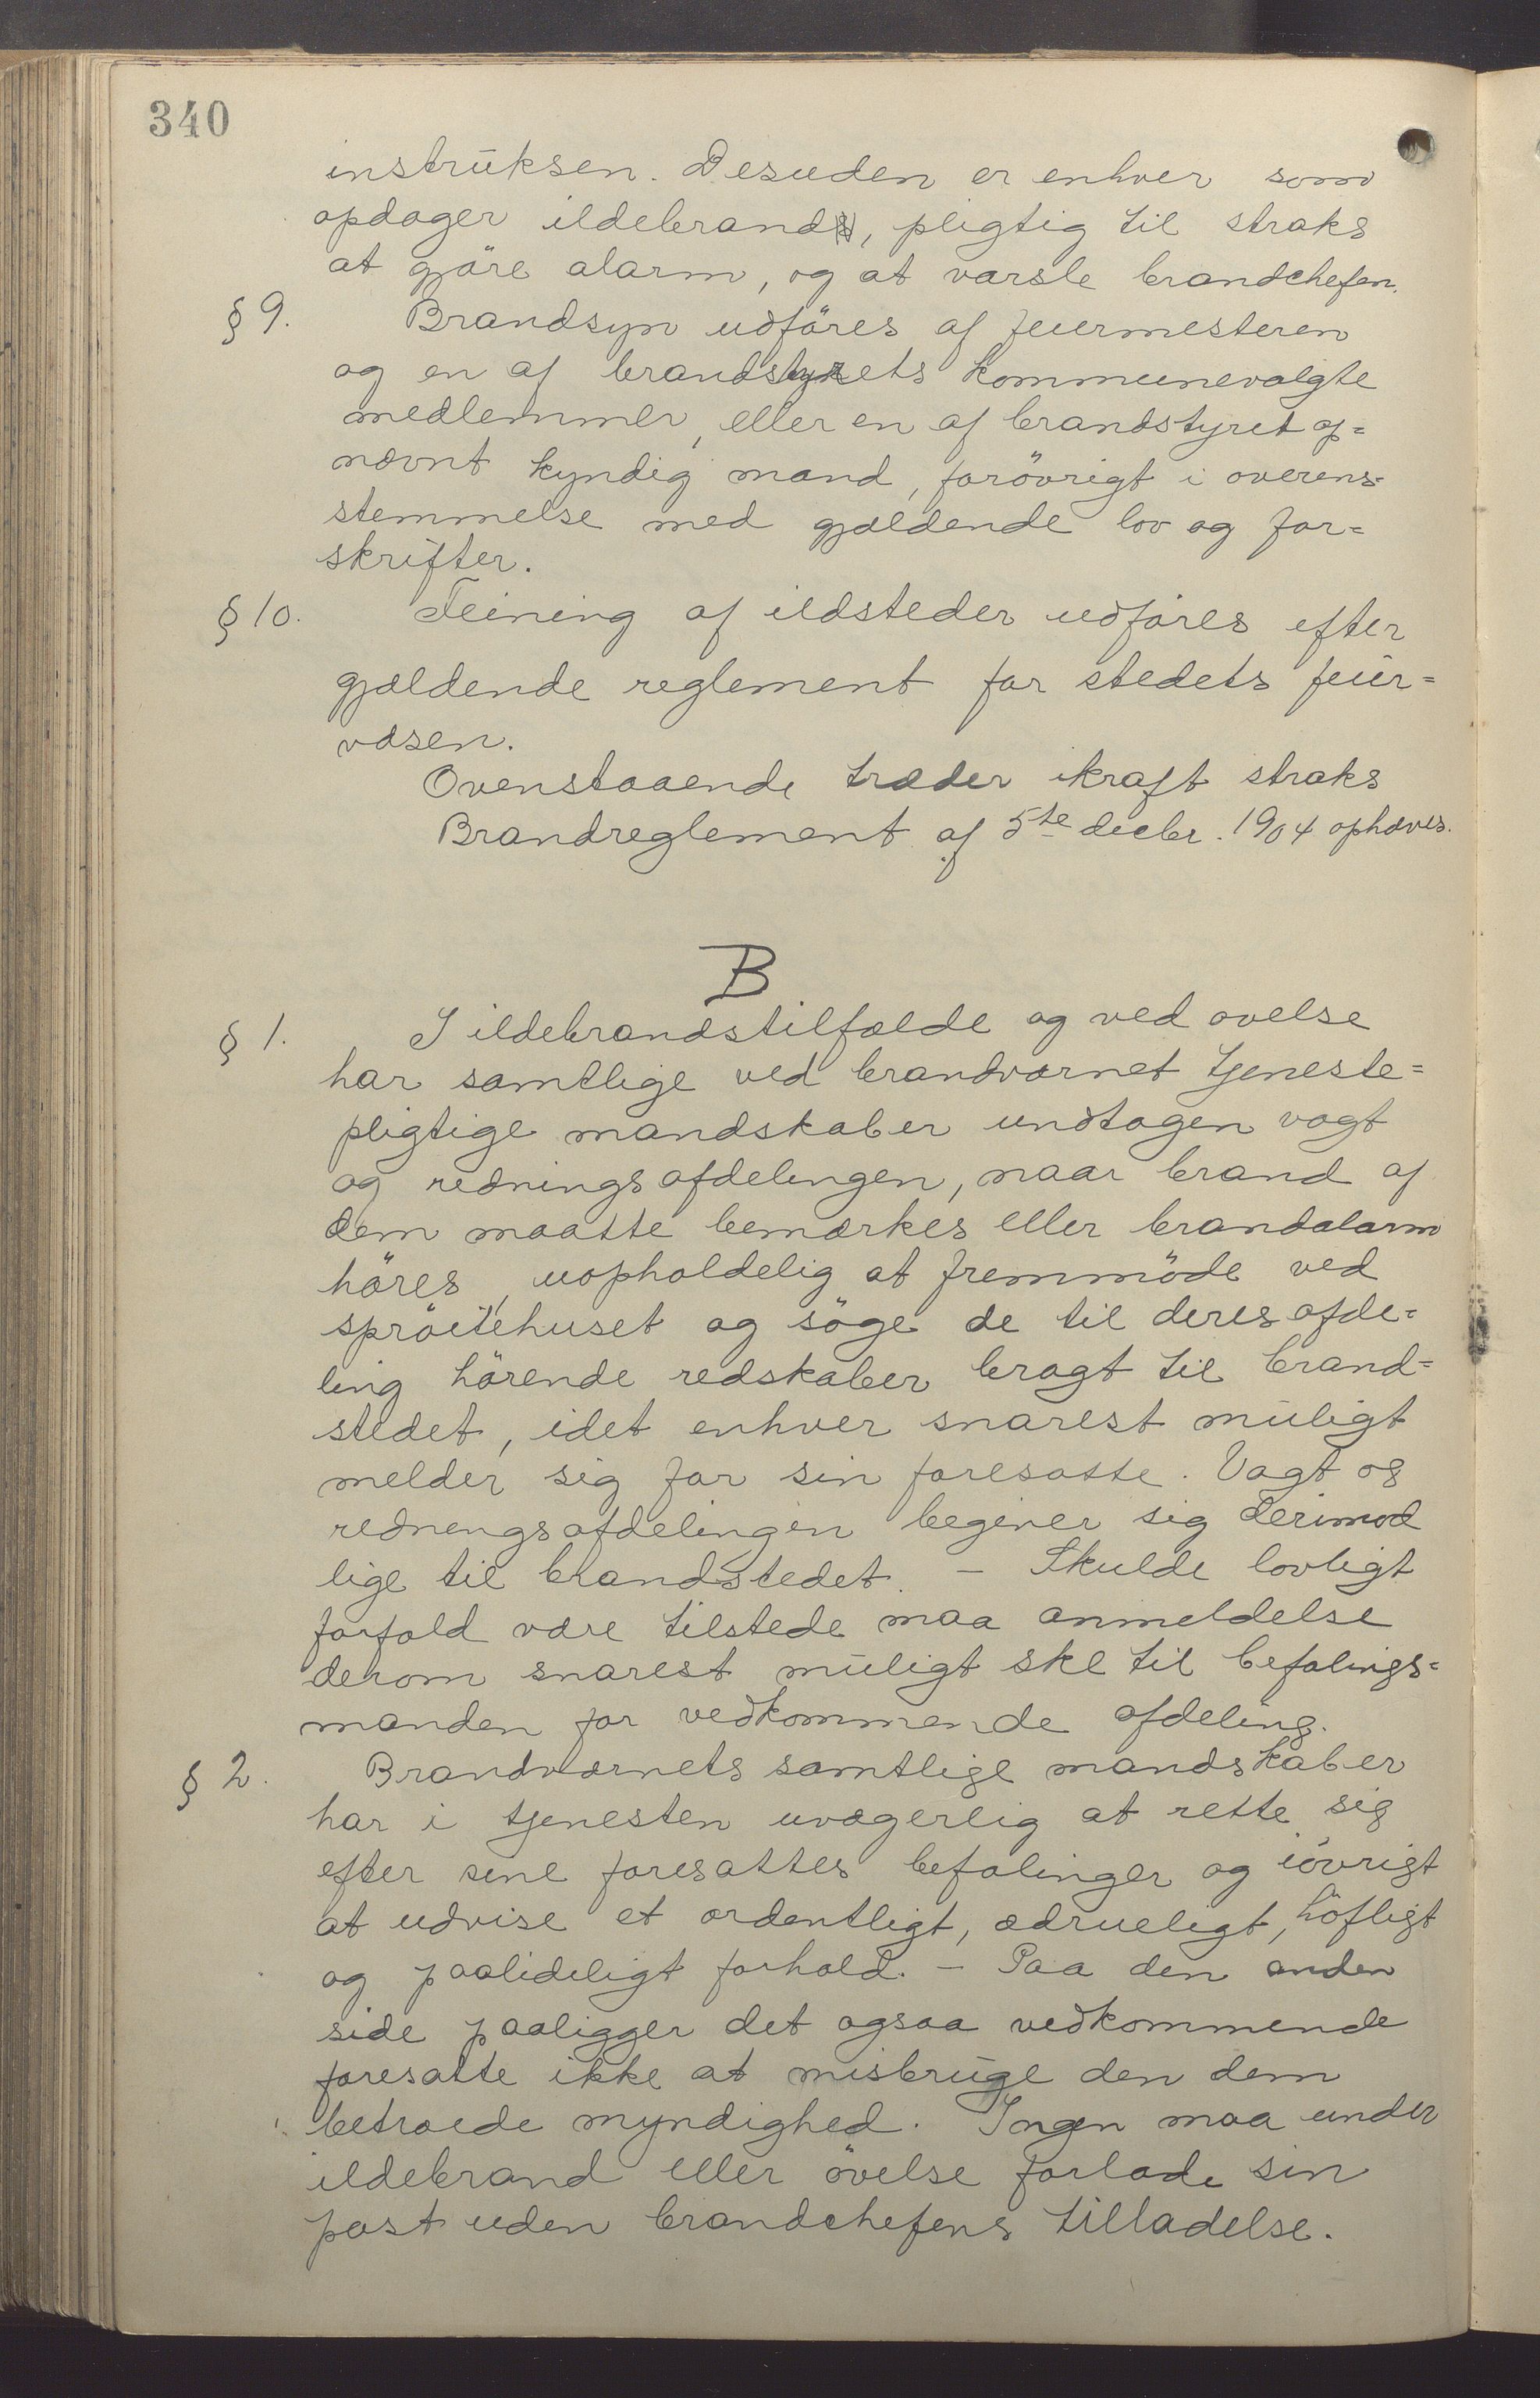 340
instruksen. Desuden er enhver som
opdager ildebrand, pligtig til straks
at gjöre alarm, og at varsle brandchefen.
§ 9. Brandsyn udföres af feiermesteren
og en af brandstyrets kommunevalgte
medlemmer, eller en af brandstyret op=
nævnt kyndig mand, forövrigt i overens=
stemmelse med gjældende lov og for=
skrifter.
§ 10. Feining af ildsteder udföres efter
gjældende reglement for stedets feier=
væsen.
Ovenstaaende træder ikraft straks
Brandreglement af 5te decbr. 1904 ophæves.
B
§ 1. I ildebrandstilfælde og ved ovelse
har samtlige ved brandværnet tjeneste=
pligtige mandskaber undtagen vagt
og redningsafdelingen, naar brand af
dem maatte bemærkes eller brandalarm
höres, uopholdelig at fremmöde ved
spröitehuset og söge de til deres afde=
ling hörende redskaber bragt til brand=
stedet, idet enhver snarest muligt
melder sig for sin foresatte. Vagt og
redningsafdelingen begiver sig derimod
lige til brandstedet. – Skulde lovligt
forfald være tilstede maa anmeldelse
derom snarest muligt ske til befalings=
manden for vedkommende afdeling.
§ 2. Brandværnets samtlige mandskaber
har i tjenesten uvægerlig at rette sig
efter sine foresattes befalinger og iövrigt
at udvise et ordentligt, ædrueligt, höfligt
og paalideligt forhold. – Paa den anden
side paaligger det ogsaa vedkommende
foresatte ikke at misbruge den dem
betroede myndighed. Ingen maa under
ildebrand eller övelse forlade sin
post uden brandchefens tilladelse.